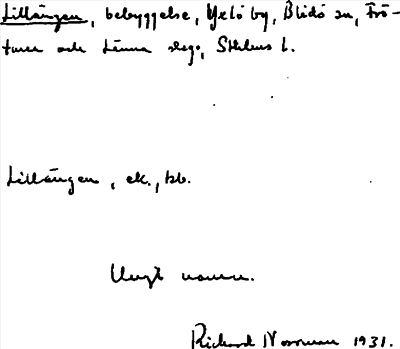 Lillängen, bebyggelse, Yxlö by, Blidö sn, Frö-
tuna och Länna skgo, Sthlms l.
Lillängen, ek., kb.
Ungt namn.
Rickard Norrman 1931.